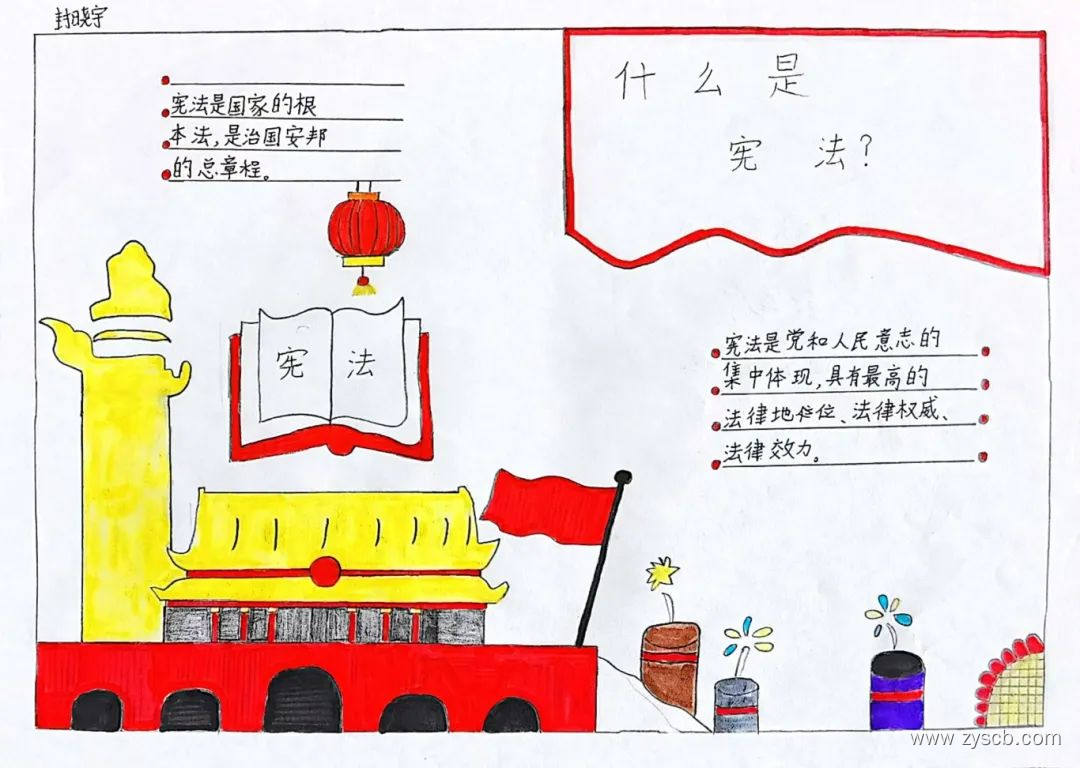 封晓宇
什么是
宪法?
宪法是国家的根
本法,是治国安邦
的总章程。
宪法
宪法是党和人民意志的
集中体现,具有最高的
法律地位、法律权威、
法律效力。
www.zyscb.com